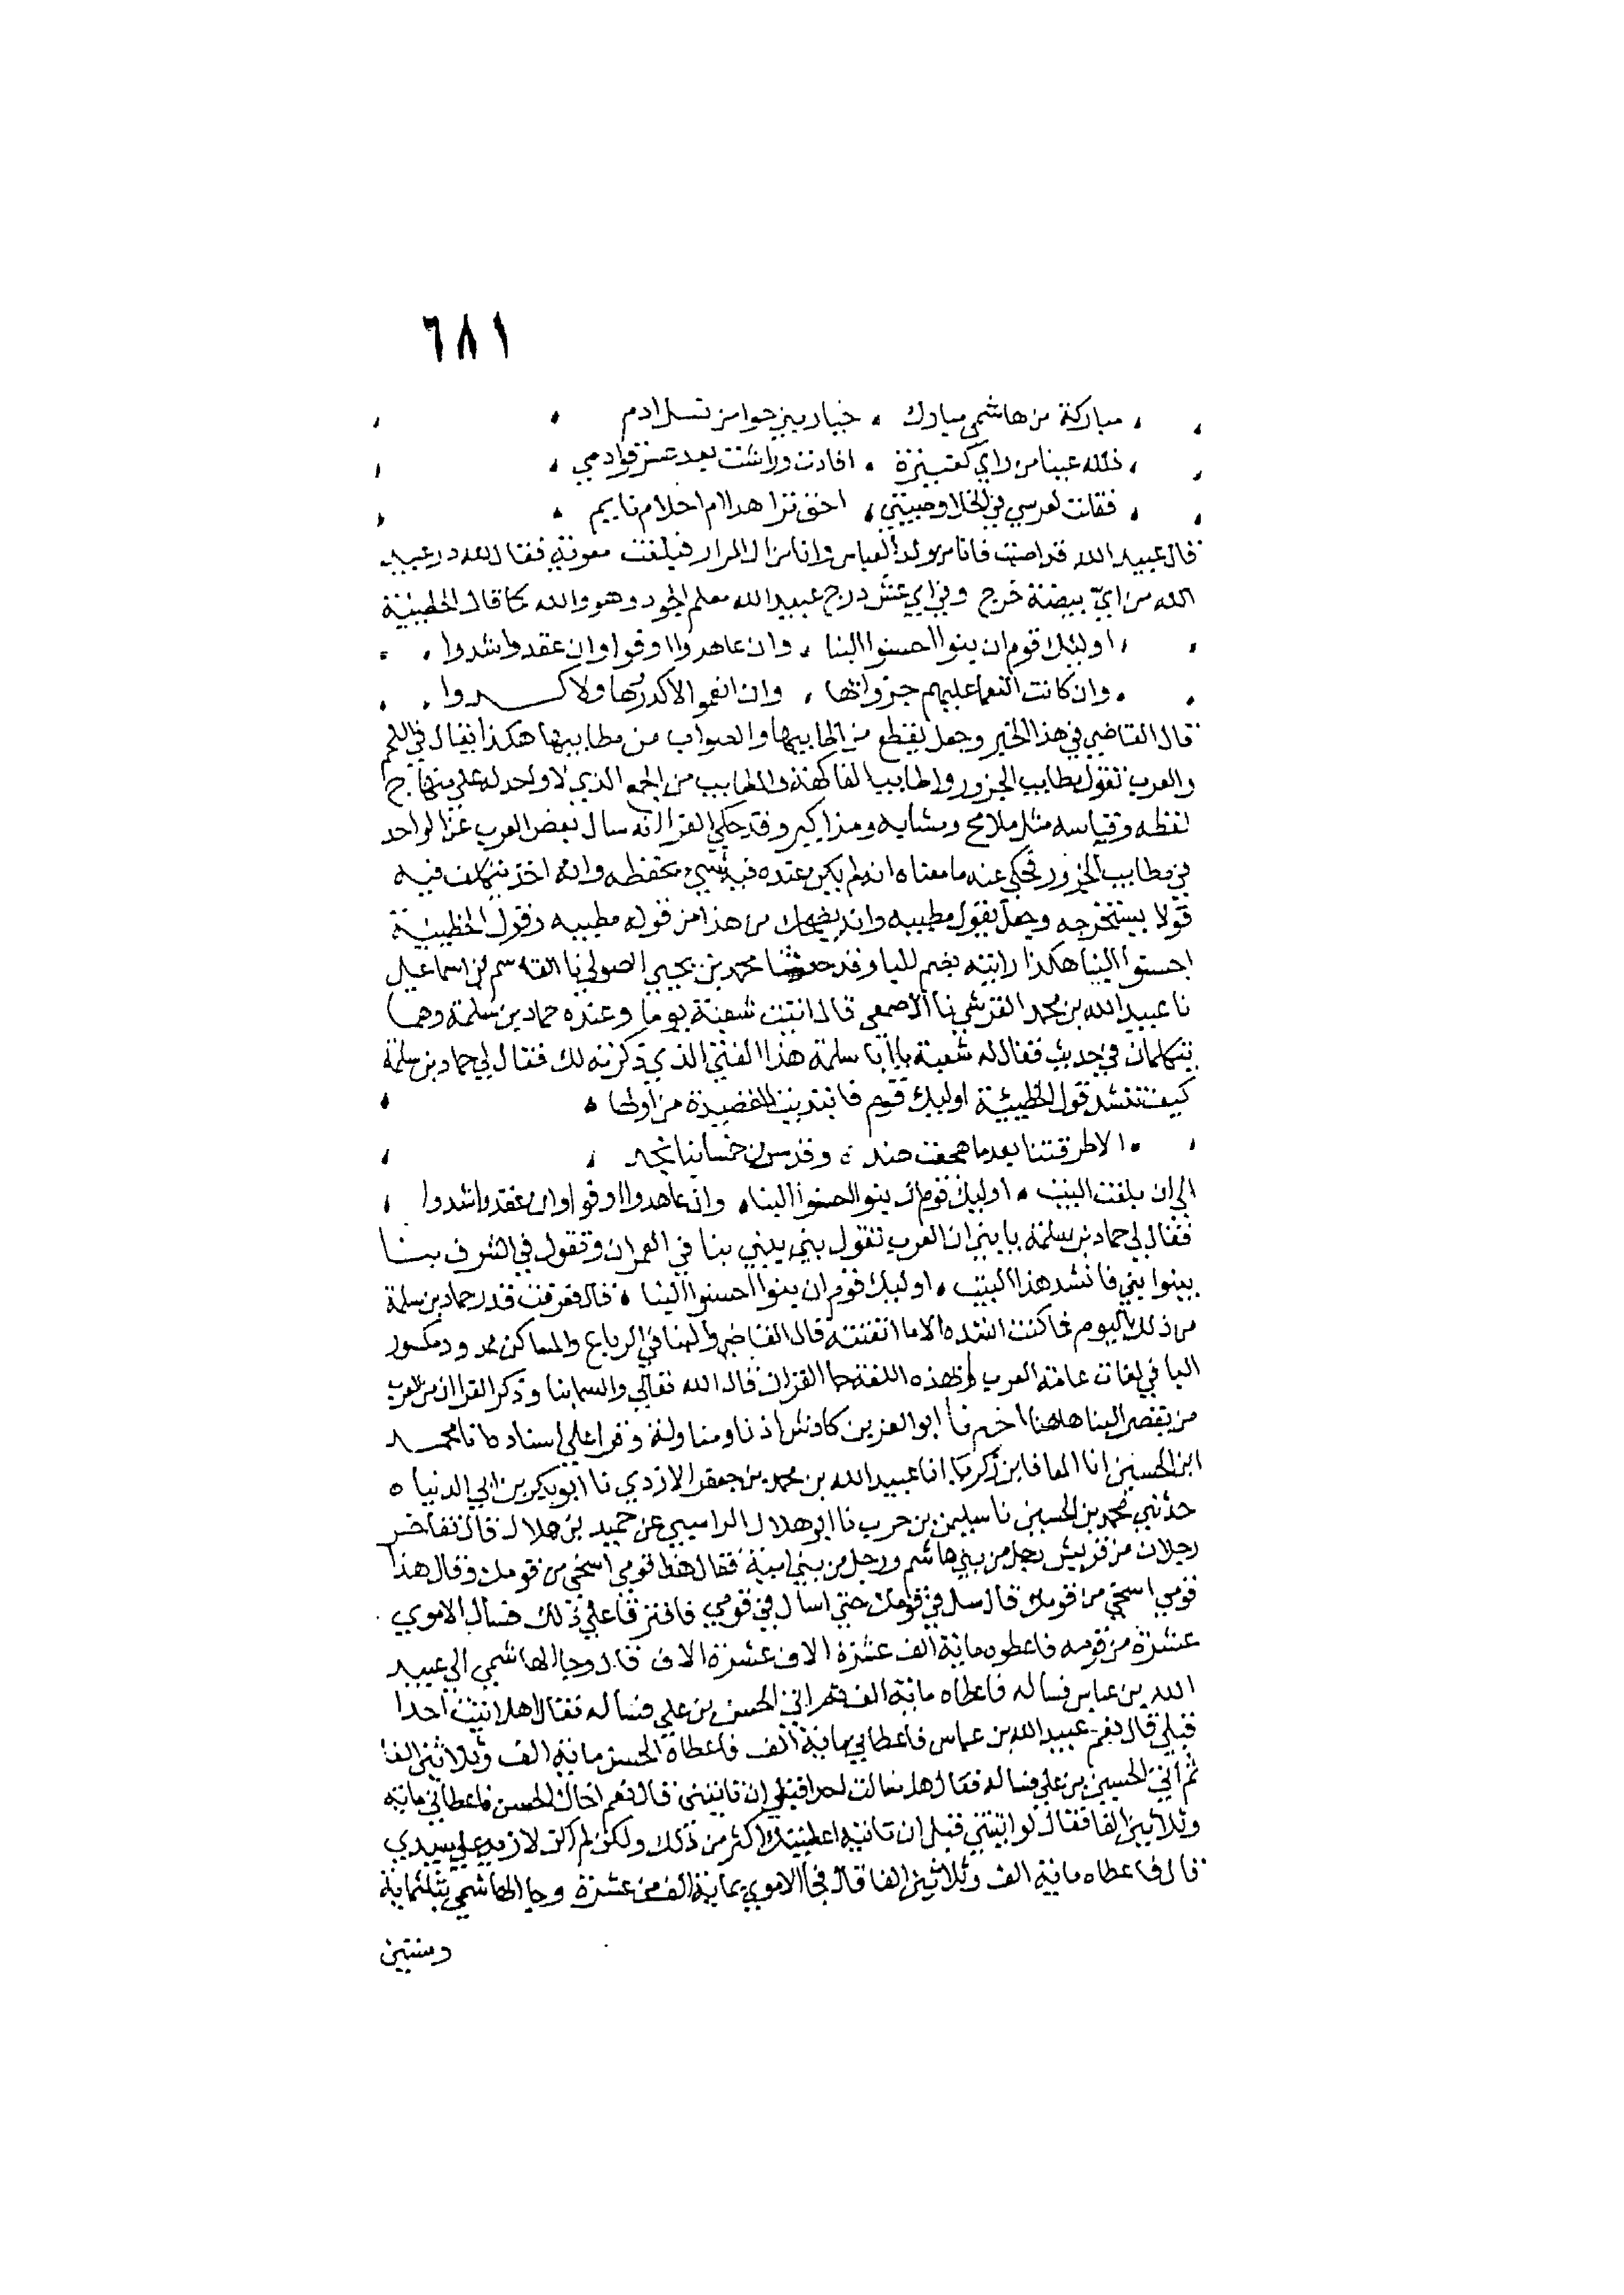 ٦٨١
مباركة من هاشمي مبارك ، خيار بني حوا من نسل ادم
فلله عينا من راي كعنيزة ، افادت وراشت بعد عسر قوادمي
فقلت لعرسي في الخلا وصبيتي ، احق تزا هذا ام احلام نايم
قال عبيد الله قد اصبت فانا من ولد العباس وانا من ال المرار فبلغت معوية فقال لله در عبيد
الله من اي بيضة خرج وفي اي عش درج عبيد الله معلم الجود وهو والله كما قال الحطيئة
اوليك قوم ان بنوا احسنوا البنا ، وان عاهدوا اوفوا وان عقدوا شدوا
وان كانت النعما عليهم جزوا بها ، وان انعموا لا كدروها ولا كدوا
قال القاضي في هذا الخبر وجعل يقطع من اطاييبها والصواب من مطاييبها هكذا يقال في اللحم
والعرب تقول مطاييب الجزور واطاييب الفاكهة والمطاييب من الجمع الذي لا واحد له علي منهاج
لفظه وقياسه مثل ملامح ومشابه ومذاكير وقد حكي الفرا انه سال بعض العرب عن الواحد
في مطاييب الجزور فحكي عنه ما معناه انه لم يكن عنده فيه شي يحفظه وانه اخذ يتكلف فيه
قولا يستخرجه وجعل يقول مطيبه وانه يضحك من هذا من قوله مطيبه وقول الحطيئة
احسنوا البنا هكذا رايته بضم للبا وقد حدثنا محمد بن يحيي الصولي نا القاسم بن اسماعيل
نا عبيد الله بن محمد القرشي نا الاصمعي قال اتيت شعبة يوما وعنده حماد بن سلمة وهما
يتكلمان في حديث فقال له شعبة يا ابا سلمة هذا الفتي الذي ذكرته لك فقال لي حماد بن سلمة
كيف تنشد قول الحطيئة اوليك قوم فابتديت القصيدة من اولها
الا طرقتنا بعدما هجعت هند ، وقد سرن خمسا بنا نجد
الي ان بلغت البيت ، اوليك قوم ان بنوا احسنوا البنا ، وان عاهدوا اوفوا وان عقدوا شدوا
فقال لي حماد بن سلمة يا بني ان العرب تقول بني يبني بنا في العمران وتقول في الشرف بنا
يبنوا بني فانشد هذا البيت ، اوليك قوم ان بنوا احسنوا البنا ، قال فعرفت قدر حماد بن سلمة
من ذلك اليوم فما كنت انشده الا ما اتقنته قال القاضي والبنا في الرباع والمساكن ممدود مكسور
البا في لغات عامة العرب وبهذه اللغة جا القران قال الله تعالي والسما بنا وذكر القرا ان من العرب
من يقصر البنا هاهنا اخبرنا ابو العز بن كادش اذنا ومناولة وقرا علي اسناده انا محمد
ابن الحسين انا المعافا بن زكريا انا عبيد الله بن محمد بن جعفر الازدي نا ابو بكر بن ابي الدنيا
حدثني محمد بن الحسين نا سليمن بن حرب نا ابو هلال الراسبي عن حميد بن هلال قال تفاخر
رجلان من قريش رجل من بني هاشم ورجل من بني امية فقال هذا قومي اسخي من قومك وقال هذا
قومي اسخي من قومك قال سل في قومك حتي اسال في قومي فافترقا علي ذلك فسال الاموي
عشرة من قومه فاعطوه ماية الف عشرة الاف عشرة الاف قال وجا الهاشمي الي عبيد
الله بن عباس فساله فاعطاه ماية الف ثم اتي الحسن بن علي فساله فقال هل اتيت احدا
قبلي قال نعم عبيد الله بن عباس فاعطاني ماية الف فاعطاه الحسن ماية الف وثلاثين الفا
ثم اتي الحسين بن علي فساله فقال هل سالت احدا قبلي ان تاتيني قال نعم اخاك الحسن فاعطاني ماية
وثلاثين الفا فقال لو اتيتني قبل ان تاتيه اعطيتك اكثر من ذلك ولكن لم اكن لازيد علي سيدي
قال فاعطاه ماية الف وثلاثين الفا قال فجا الاموي بماية الف من عشرة وجا الهاشمي بثلثماية
وستين